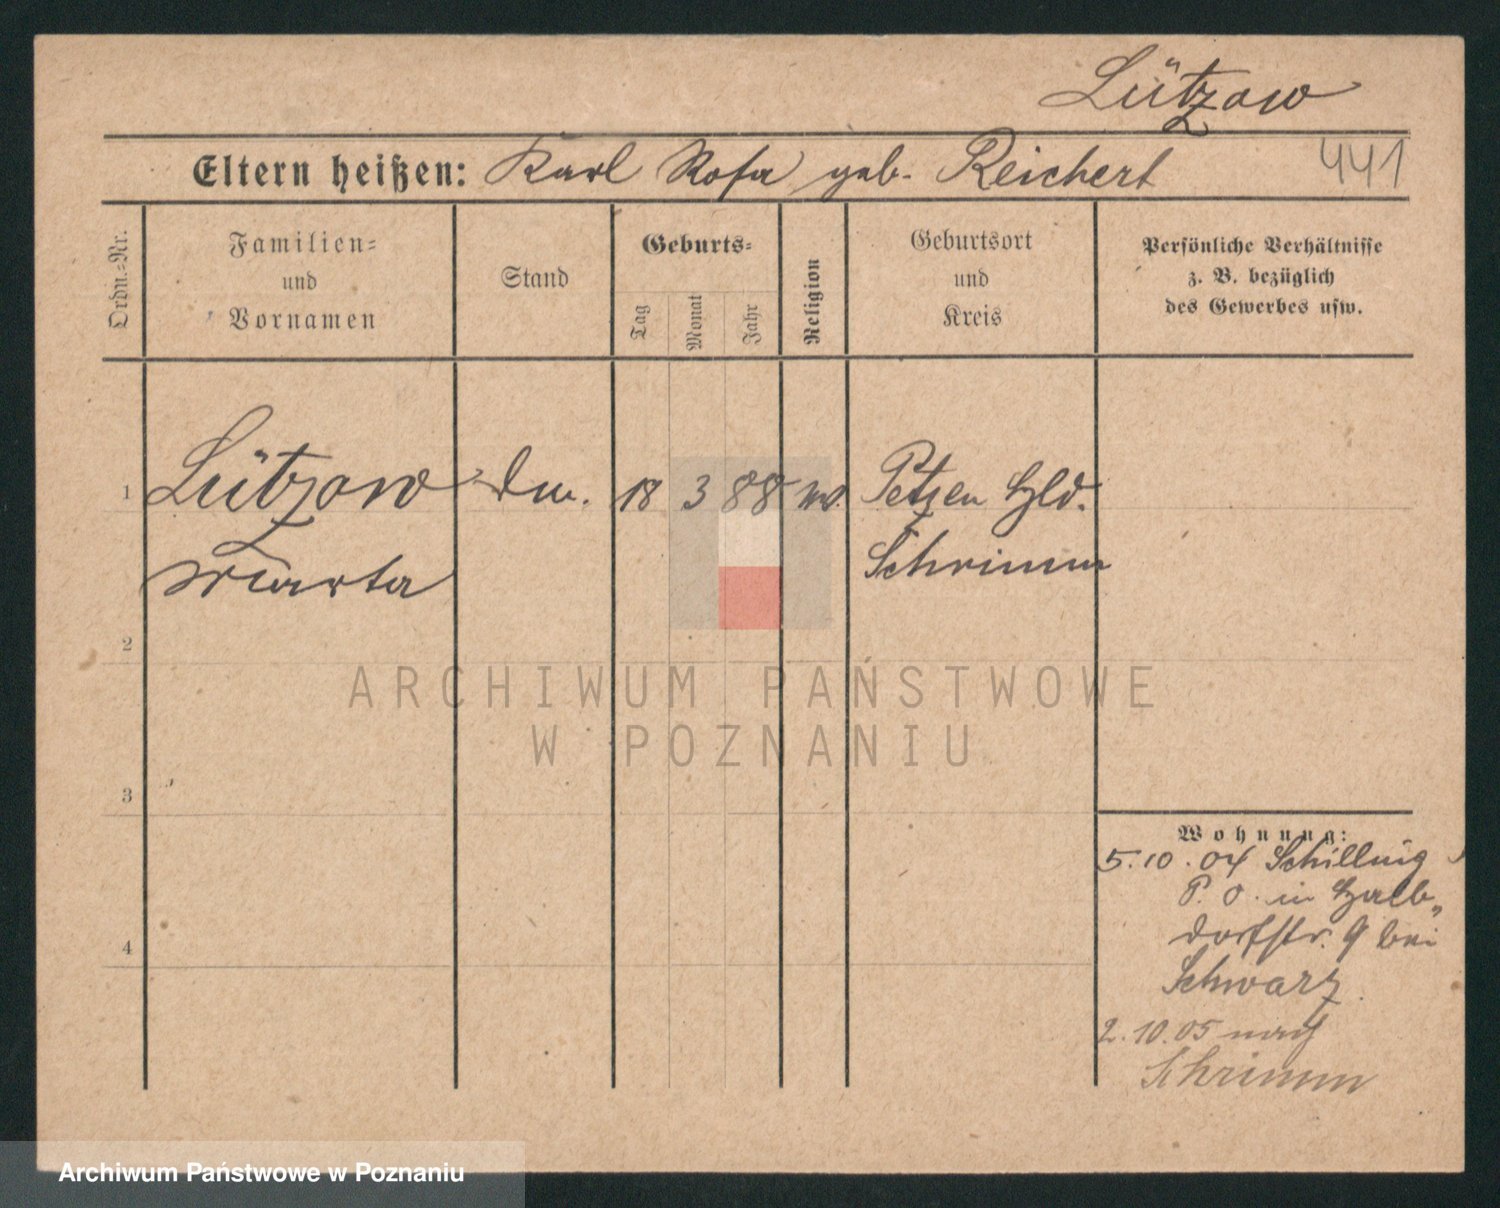 Lützow
Eltern heißen: Karl Rosa geb. Reichert
441
Ordn.=Nr.
Familien=
und
Vornamen
Stand
Geburts=
Tag
Monat
Jahr
Religion
Geburtsort
und
Kreis
Persönliche Verhältnisse
z. B. bezüglich
des Gewerbes usw.
1
Lützow
Marta
18
3
88
Petzen Hld.
Schrimm
2
3
4
Wohnung:
5.10.04 Schilling
P. O. in
dorfstr. 9 bei
Schwarz
2.10.05 nach
Schrimm
ARCHIWUM PAŃSTWOWE
W POZNANIU
Archiwum Państwowe w Poznaniu